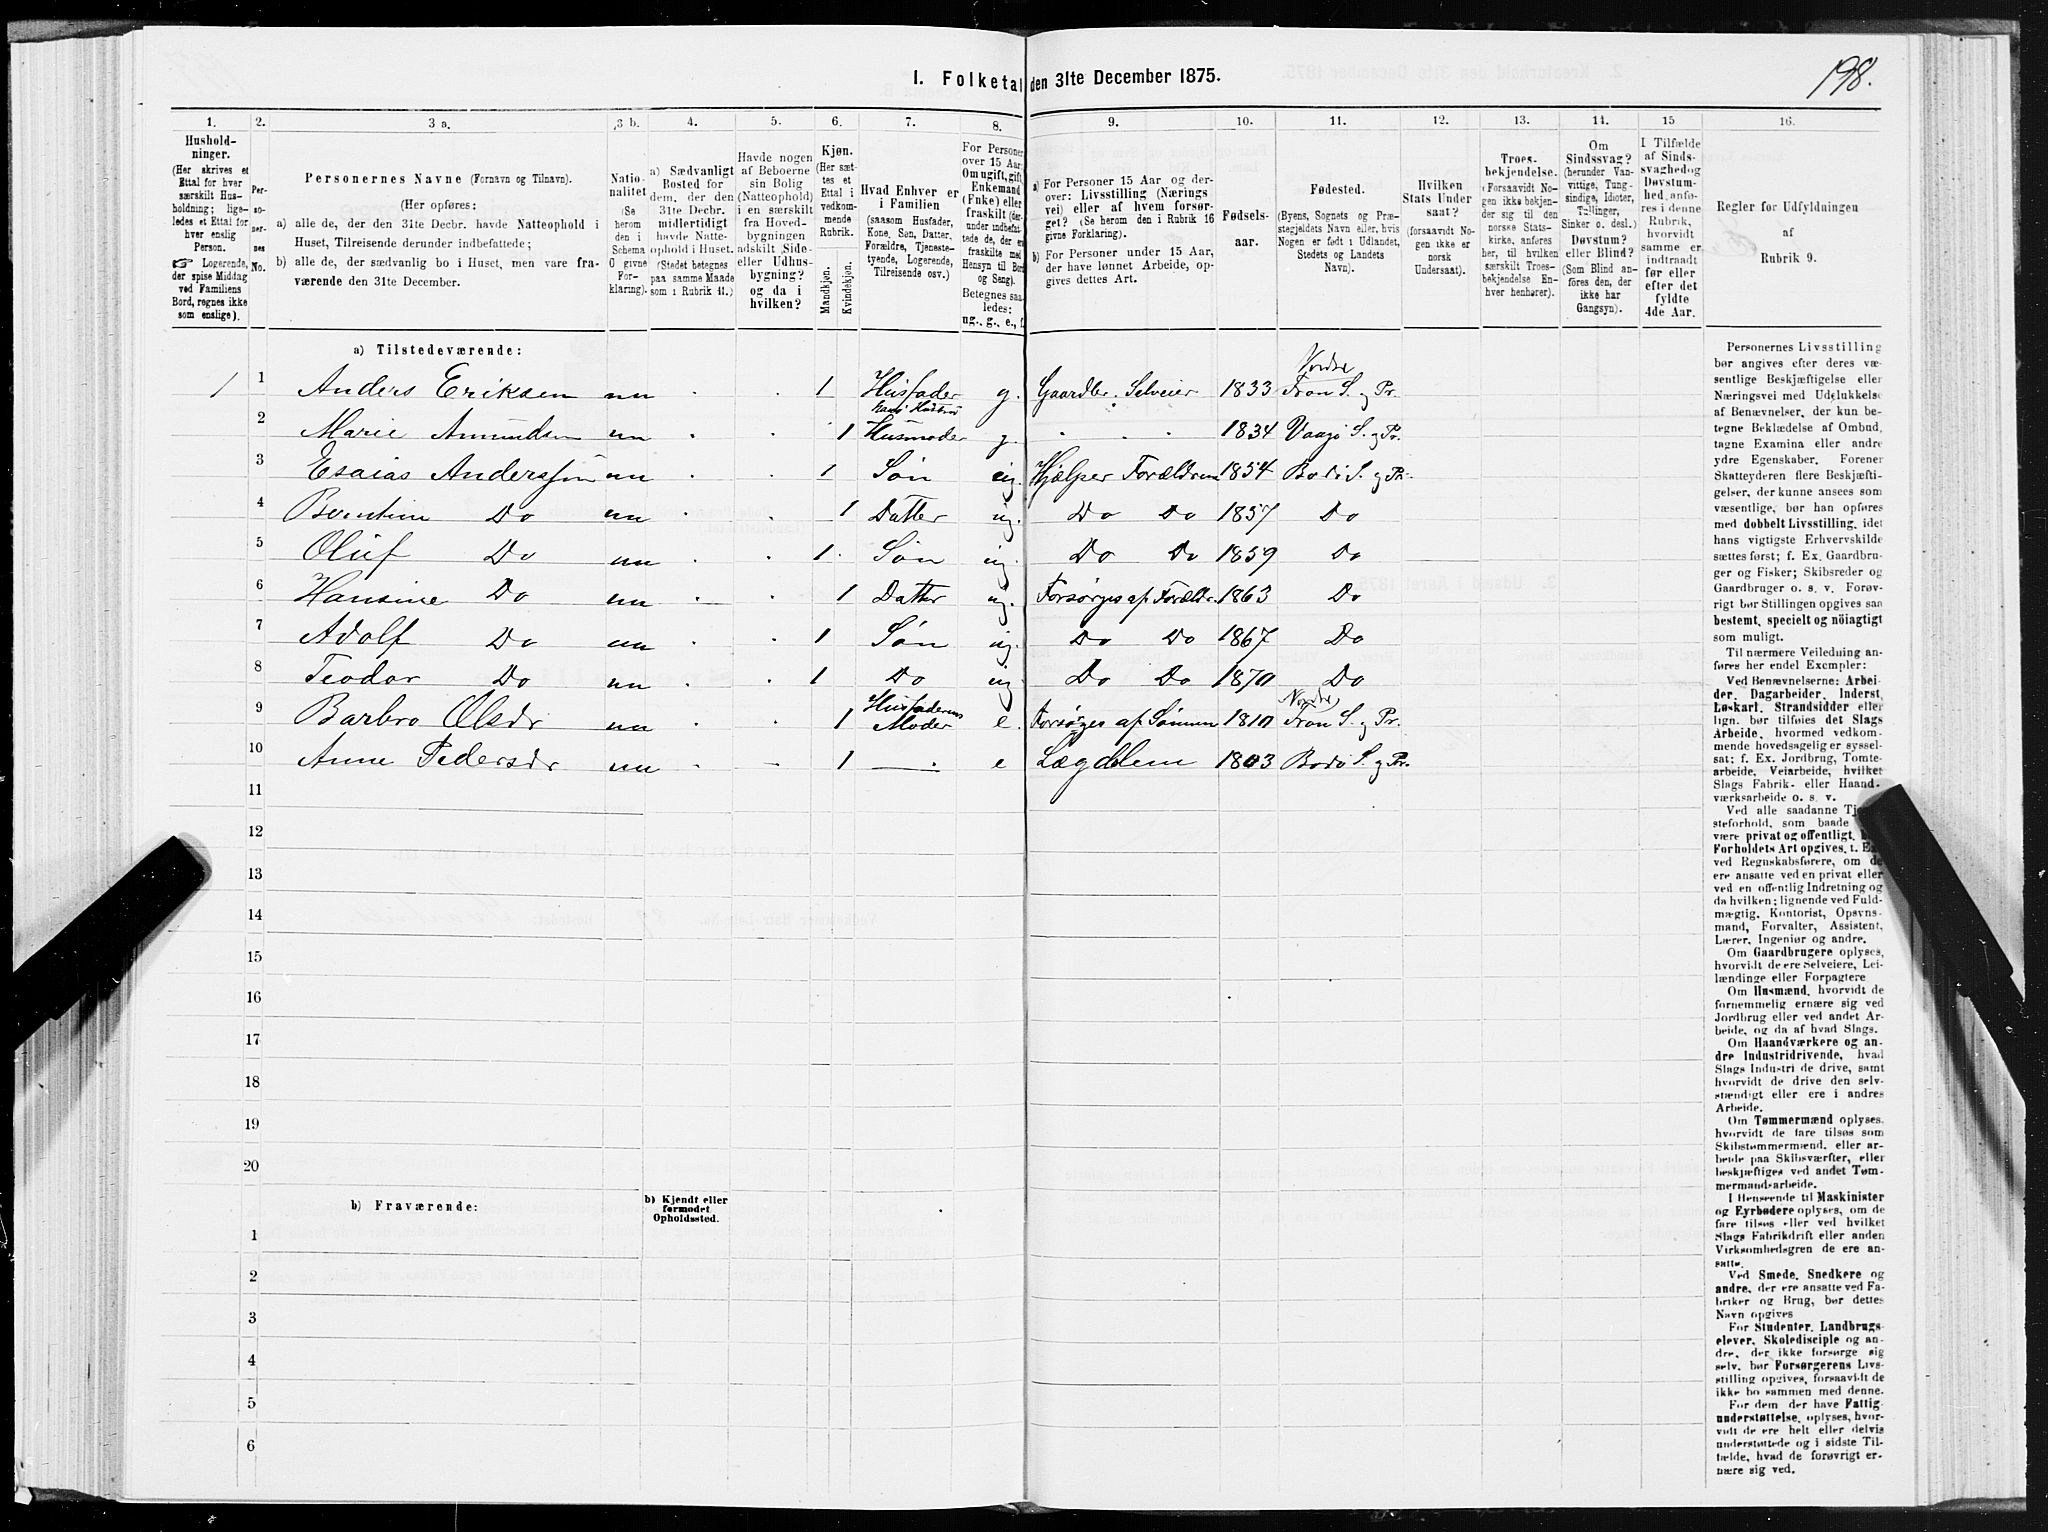 198.
I. Folketal den 31te December 1875.
1. 2. 3 a. 3 b. 4. 5. 6. 7. 8. 9. 10. 11. 12. 13. 14. 15 16.
Hushold-
ninger.
(Her skrives et
Ettal for hver
særskilt Hus-
holdning; lige-
ledes et Ettal for
hver enslig
Person.
☞ Logerende,
der spise Middag
ved Familiens
Bord, regnes ikke
som enslige).
Per-
so-
ner-
nes
No.
Personernes Navne (Fornavn og Tilnavn).
(Her opføres:
a) alle de, der den 31te Decbr. havde Natteophold i
Huset, Tilreisende derunder indbefattede;
b) alle de, der sædvanlig bo i Huset, men vare fra-
værende den 31te December.
Natio-
nalitet
(Se
herom
den i
Schema
O givne
For-
klaring).
a) Sædvanligt
Bosted for
dem, der den
31te Decbr.
midlertidigt
havde Natte-
ophold i Huset.
(Stedet betegnes
paa samme Maade
som i Rubrik 11.)
Havde nogen
af Beboerne
sin Bolig
(Natteophold)
i en særskilt
fra Hoved-
bygningen
adskilt Side-
eller Udhus-
bygning?
og da i
hvilken?
Kjøn.
(Her sæt-
tes et
Ettal i
vedkom-
mende
Rubrik.
Mandkjøn.
Kvindekjøn.
Hvad Enhver er
i Familien
(saasom Husfader,
Kone, Søn, Datter,
Forældre, Tjeneste-
tyende, Logerende,
Tilreisende osv.)
For Personer
over 15 Aar:
Om ugift, gift,
Enkemand
(Enke) eller
fraskilt (der-
under indbefat-
tede de, der er
fraskilte med
Hensyn til Bord
og Seng).
Betegnes saa-
ledes:
ug., g., e., f.
a) For Personer 15 Aar og der-
over: Livsstilling (Nærings-
vei) eller af hvem forsør-
get? (Se herom den i Rubrik 16
givne Forklaring).
b) For Personer under 15 Aar,
der have lønnet Arbeide, op-
gives dettes Art.
Fødsels-
aar.
Fødested.
(Byens, Sognets og Præ-
stegjeldets Navn eller, hvis
Nogen er født i Udlandet,
Stedets og Landets
Navn).
Hvilken
Stats Under
saat?
(forsaavidt No-
gen ikke er
norsk
Undersaat).
Troes-
bekjendelse.
(Forsaavidt No-
gen ikke bekjen-
der sig til den
norske Stats-
kirke, anføres
her, til hvilken
særskilt Troes-
bekjendelse En-
hver henhører).
Om
Sindssvag?
(herunder Van-
vittige, Tung-
sindige, Idioter,
Tullinger,
Sinker o. desl.)
Døvstum?
eller Blind?
(Som Blind an-
føres den, der
ikke har
Gangsyn).
I Tilfælde
af Sinds-
svaghed og
Døvstum-
hed, anfø-
res i denne
Rubrik,
hvorvidt
samme er
indtraadt
før eller
efter det
fyldte
4de Aar.
Regler for Udfyldningen
af
Rubrik 9.
a) Tilstedeværende:
1 1 Anders Eriksen nn 1 Husfader g. Gaardbr. Selveier 1833 Nordre Fron S. og Pr.
2 Marie Amundsen nn 1 hans Hustru Husmoder g. 1834 Vaagø S. og Pr.
3 Esaias Anderssøn nn 1 Søn ug. Hjælper Forældrene 1854 Bodø S. og Pr.
4 Berntine Do nn 1 Datter ug. Do Do 1857 Do
5 Oluf Do nn 1 Søn ug. Do Do 1859 Do
6 Hansine Do nn 1 Datter ug. Forsørges af Forældr. 1863 Do
7 Adolf Do nn 1 Søn ug. Do Do 1867 Do
8 Teodor Do nn 1 Do ug Do Do 1870 Do
9 Barbro Olsdr nn 1 Husfaderens Moder e. Forsørges af Sønnen 1810 Nordre Fron S. og Pr.
10 Anne Pedersdr nn 1 e Lægdslem 1803 Bodø S. og Pr.
11
12
13
14
15
16
17
18
19
20
b) Fraværende:
b) Kjendt eller
formodet
Opholdssted.
1
2
3
4
5
6
Personernes Livsstilling
bør angives efter deres væ-
sentlige Beskjæftigelse eller
Næringsvei med Udelukkelse
af Benævnelser, der kun be-
tegne Beklædelse af Ombud,
tagne Examina eller andre
ydre Egenskaber. Forener
Skatteyderen flere Beskjæfti-
gelser, der kunne ansees som
væsentlige, bør han opføres
med dobbelt Livsstilling, idet
hans vigtigste Erhvervskilde
sættes først; f. Ex. Gaardbru-
ger og Fisker; Skibsreder og
Gaardbruger o. s. v. Forøv-
rigt bør Stillingen opgives saa
bestemt, specielt og nöiagtigt
som muligt.
Til nærmere Veiledning an-
føres her endel Exempler:
Ved Benævnelserne: Arbei-
der, Dagarbeider, Inderst,
Løskarl, Strandsidder eller
lign. bør tilføies det Slags
Arbeide, hvormed vedkom-
mende hovedsagelig er syssel-
sat; f. Ex. Jordbrug, Tomte-
arbeide, Veiarbeide, hvilket
Slags Fabrik- eller Haand-
værksarbeide o. s. v.
Ved alle saadanne Tje-
steforhold, som baade
være privat og offentligt,
Forholdets Art opgives, f. Ex.
ved Regnskabsførere, om de
ere ansatte ved en privat eller
ved en offentlig Indretning og
da hvilken; lignende ved Fuld-
mægtig, Kontorist, Opsyns-
mand, Forvalter, Assistent,
Lærer, Ingeniør og andre.
Om Gaardbrugere oplyses,
hvorvidt de ere Selveiere, Lei-
lændinge eller Forpagtere
Om Husmænd, hvorvidt de
fornemmelig ernære sig ved
Jordbrug eller ved andet Ar-
beide, og da af hvad Slags.
Om Haandværkere og an-
dre Industridrivende, hvad
Slags Industri de drive, samt
hvorvidt de drive den selv-
stændigt eller ere i andres
Arbeide.
Om Tømmermænd oplyses,
hvorvidt de fare tilsøs som
Skibstømmermænd, eller ar-
beide paa Skibsværfter, eller
beskjæftiges ved andet Tøm-
mermandsarbeide.
I Henseende til Maskinister
og Fyrbødere oplyses, om de
fare tilsøs eller ved hvilket
Slags Fabrikdrift eller anden
Virksomhedsgren de ere an-
satte.
Ved Smede, Snedkere og
andre, der ere ansatte ved Fa-
briker og Brug, bør dettes
Navn opgives
For Studenter, Landbrugs-
elever, Skoledisciple og an-
dre, der ikke forsørge sig
selv, bør Forsørgerens Livs-
stilling opgives, forsaavidt de
ikke bo sammen med denne.
For dem, der have Fattig-
understøttelse, oplyses, hvor-
vidt de ere helt eller delvis
understøttede og i sidste Til-
fælde, hvad de forøvrigt er-
nære sig ved.